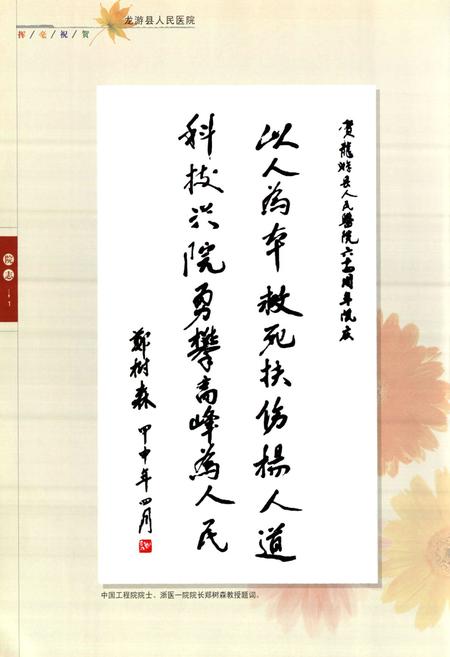 龙游县人民医院
挥/毫/祝/贺
賀龍游县人民醫院六十五周年院庆
以人為本救死扶伤揚人道
科技兴院勇攀高峰為人民
鄭樹森 甲申年四月
院志
1
中国工程院院士、浙医一院院长郑树森教授题词。